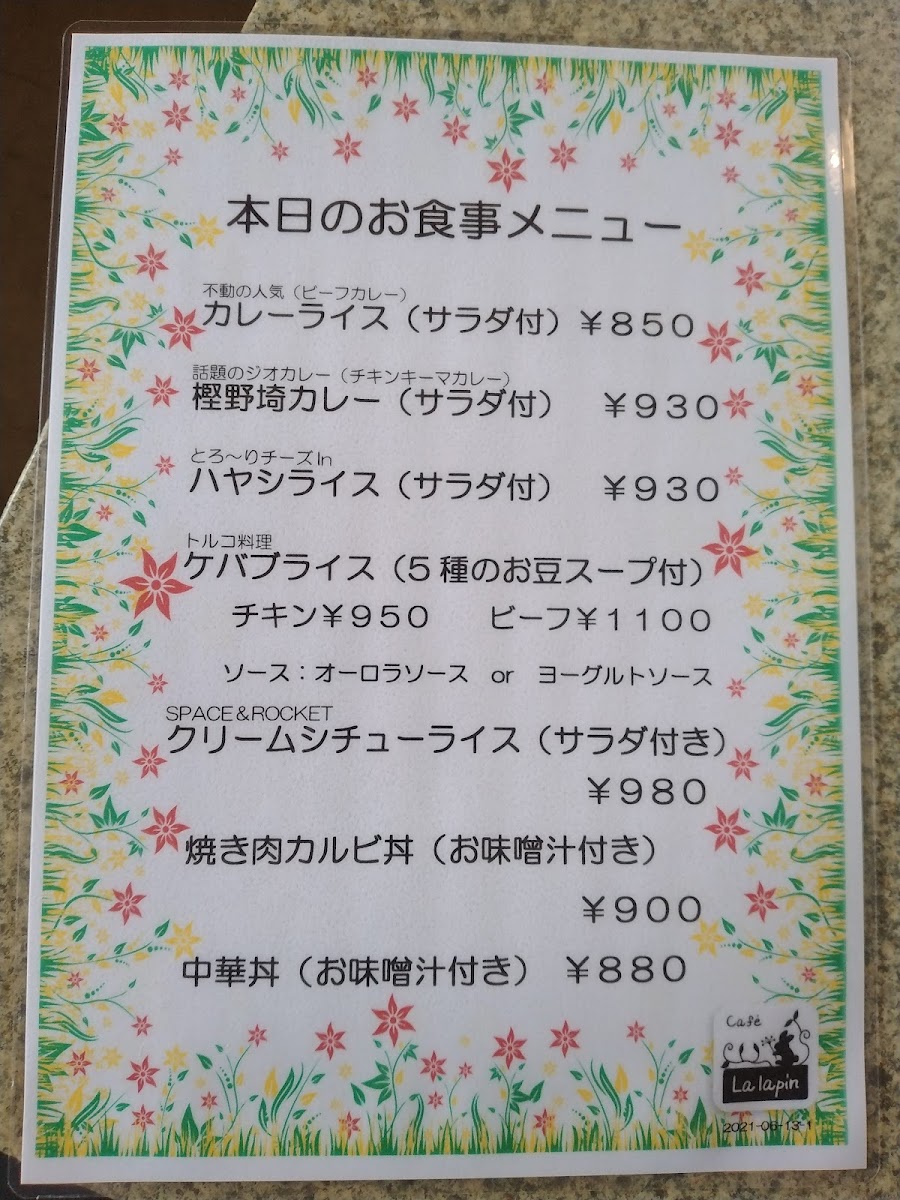 本日のお食事メニュー
不動の人気（ビーフカレー）
カレーライス（サラダ付）￥８５０
話題のジオカレー（チキンキーマカレー）
樫野埼カレー（サラダ付）　￥９３０
とろ～りチーズIn
ハヤシライス（サラダ付）　￥９３０
トルコ料理
ケバブライス（５種のお豆スープ付）
チキン￥９５０　ビーフ￥１１００
ソース：オーロラソース　or　ヨーグルトソース
SPACE＆ROCKET
クリームシチューライス（サラダ付き）
￥９８０
焼き肉カルビ丼（お味噌汁付き）
￥９００
中華丼（お味噌汁付き）　￥８８０
Café
La lapin
2021-06-13-1